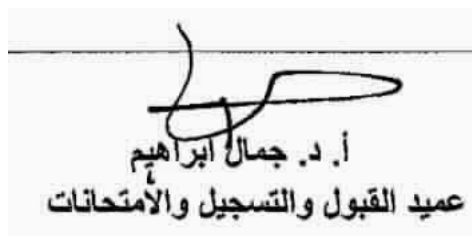 أ. د. جمال ابراهيم
عميد القبول والتسجيل والأمتحانات